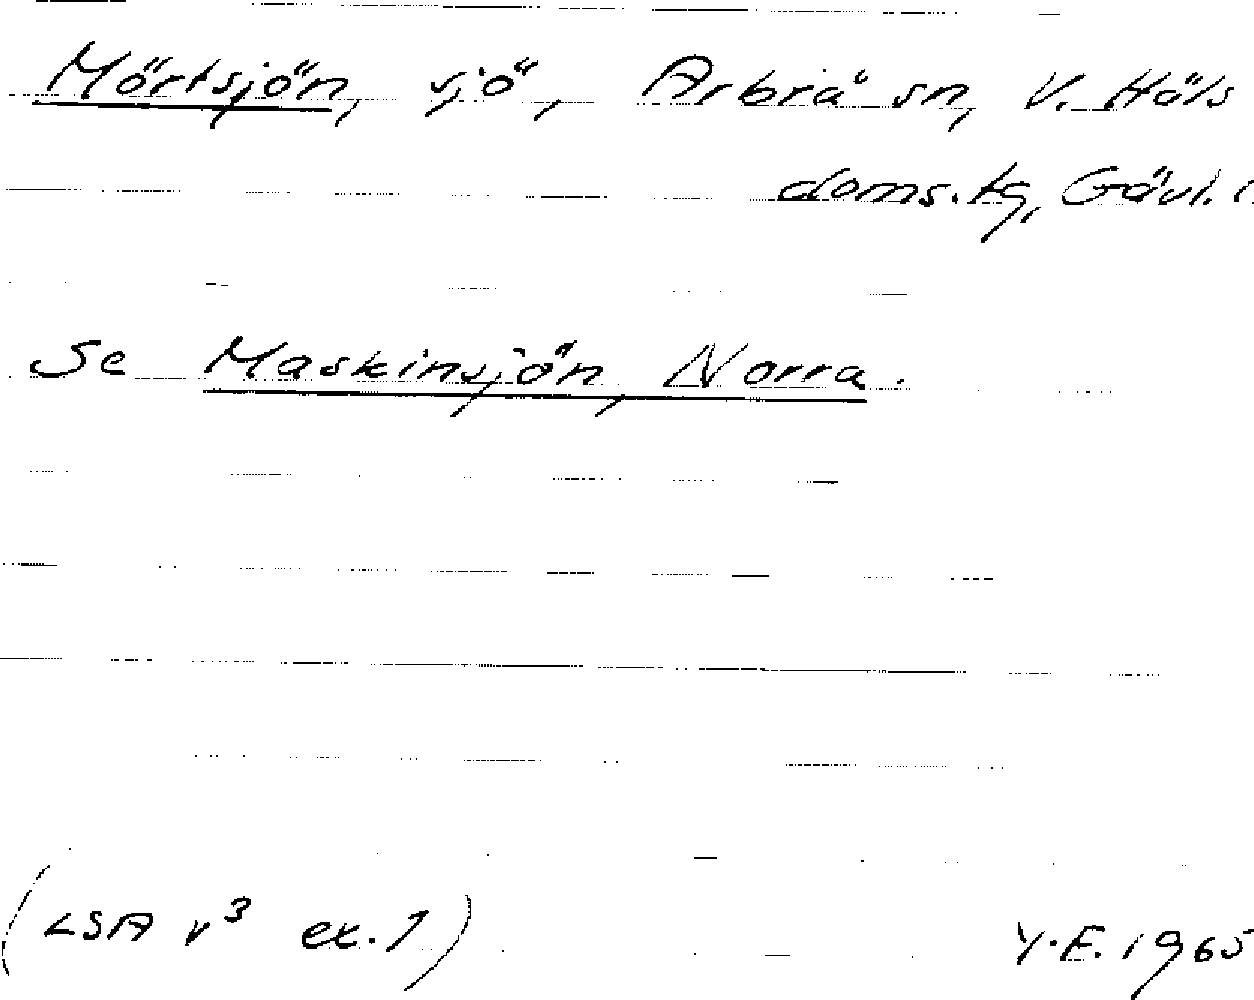 Mörtsjön, sjö, Arbrå sn, V. Häls
doms.tg, Gävl. l.
Se Maskinsjön, Norra.
(LSA v³ ex. 1)
Y.E. 1965